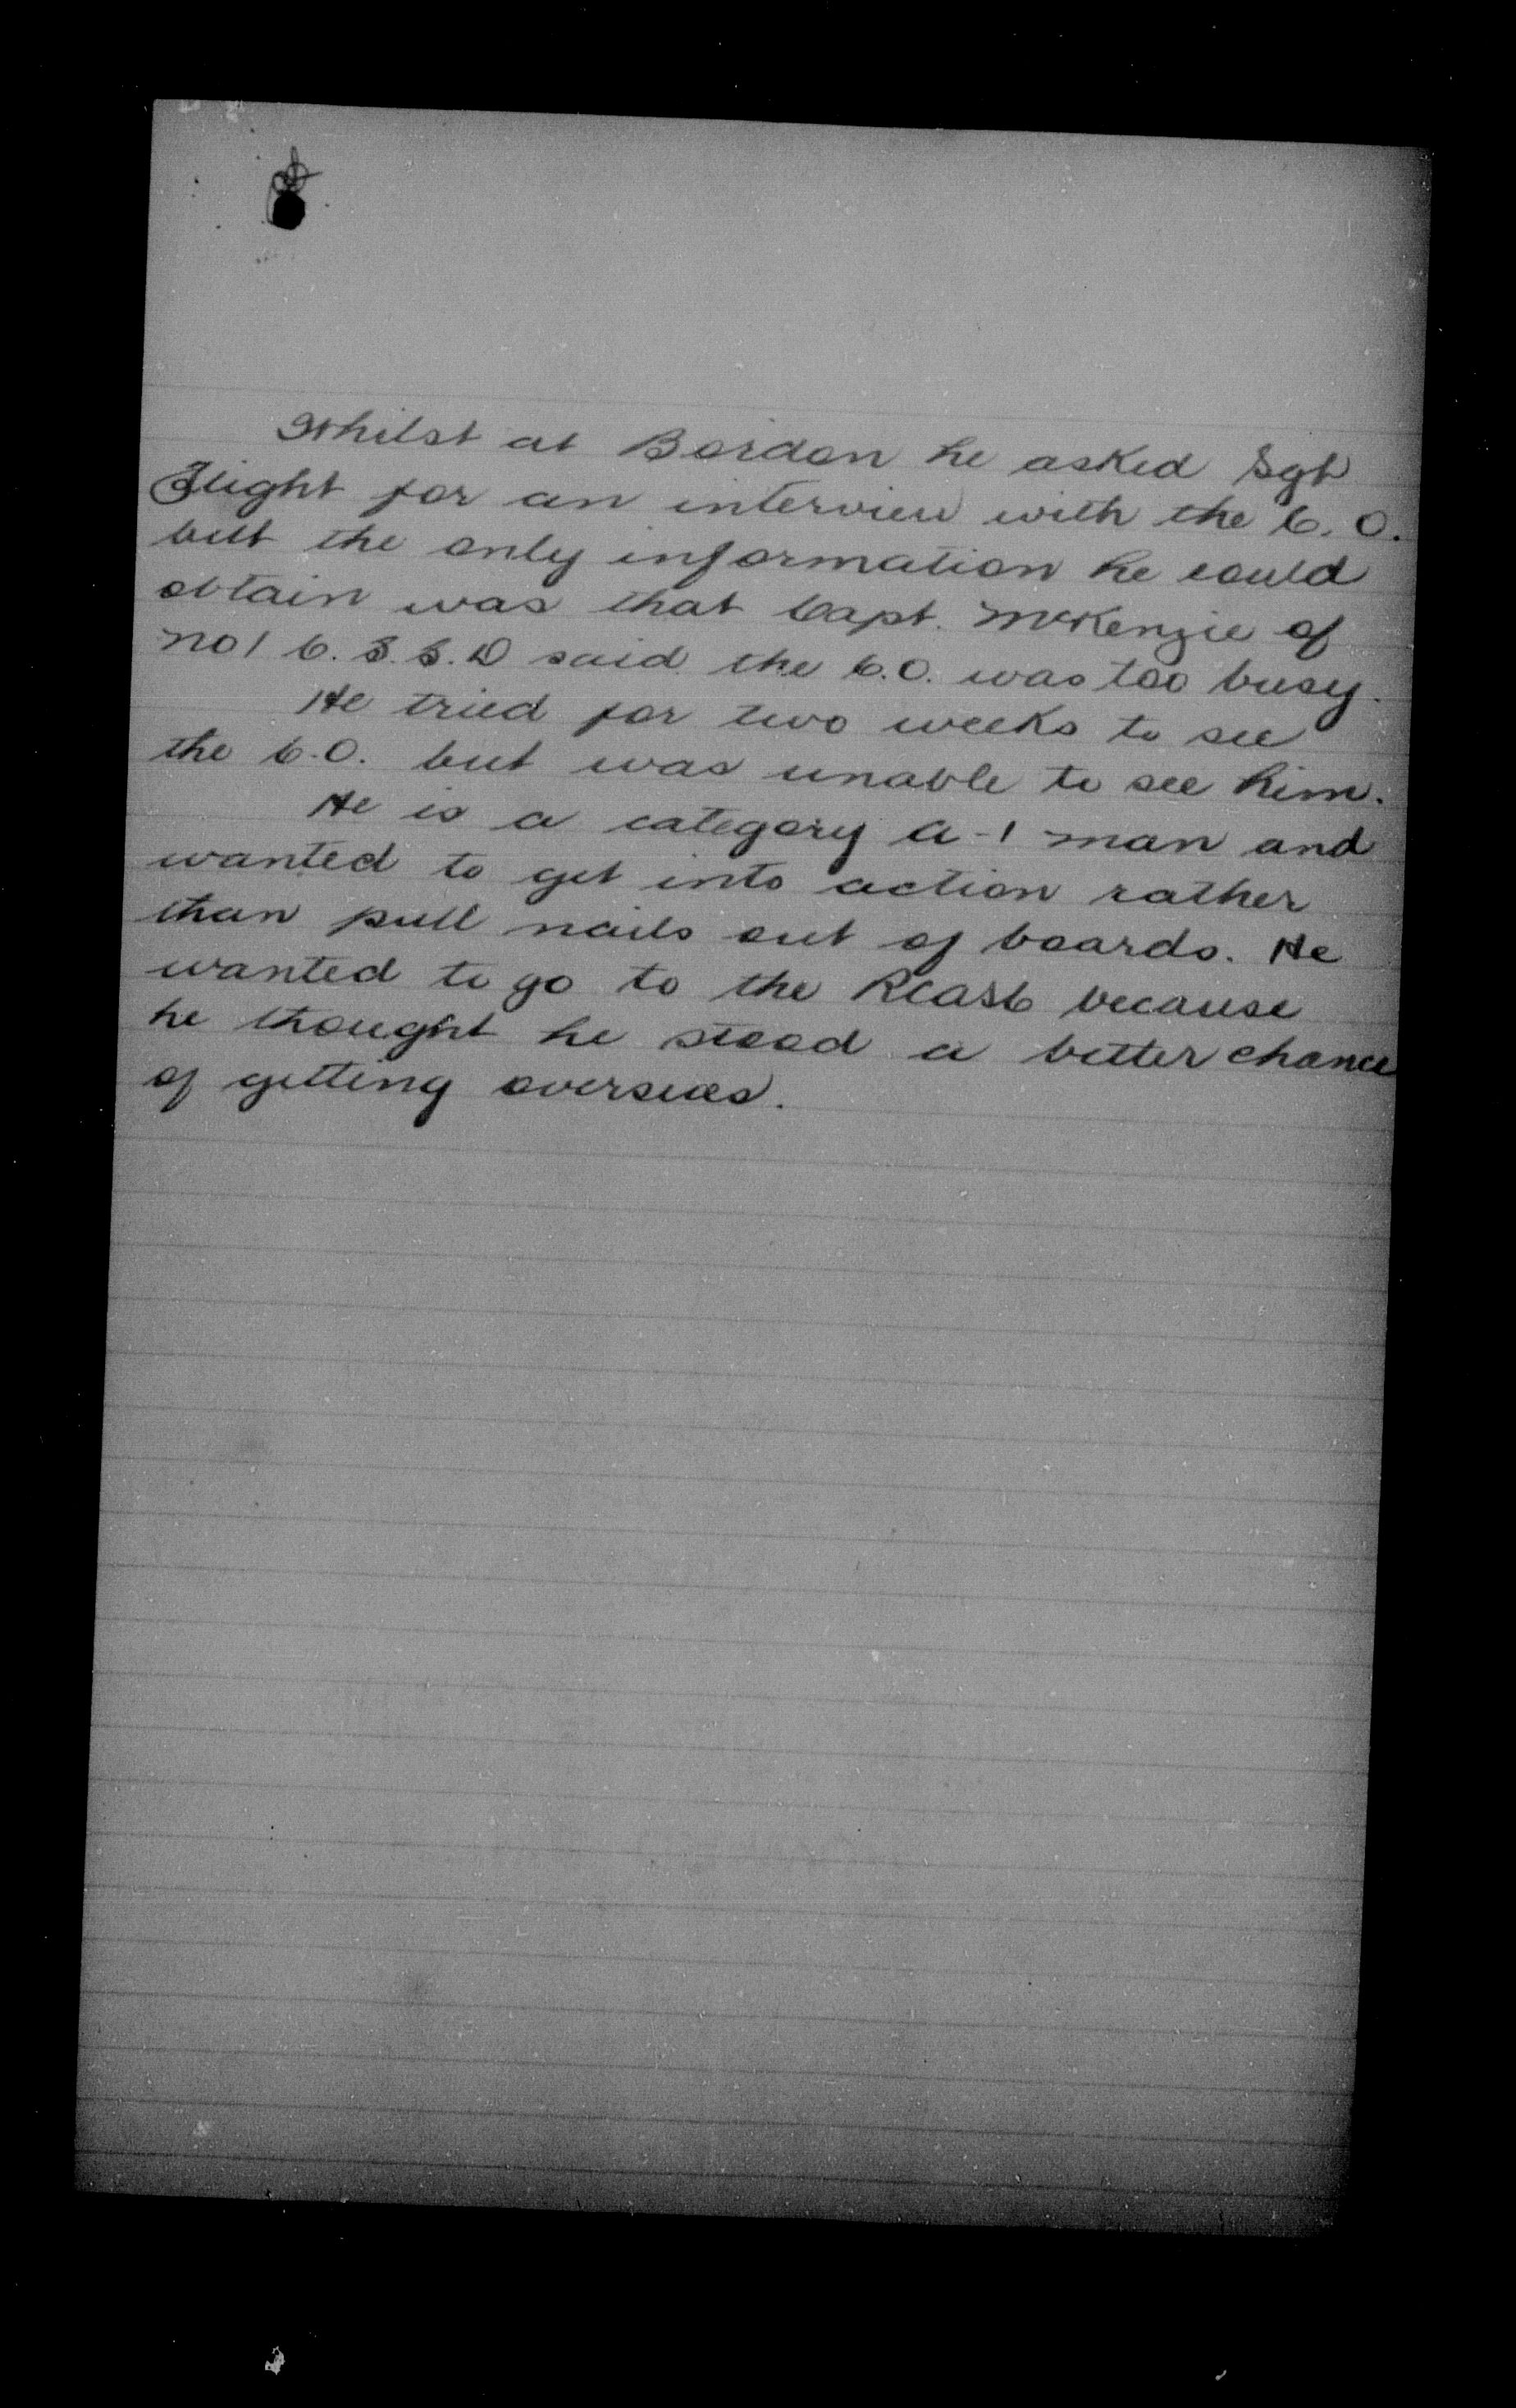 Whilst at Bordon he asked Sgt
Flight for an interview with the C.O.
but the only information he could
obtain was that Capt. McKenzie of
No 1 C.S.S.D said the C.O. was too busy.
He tried for two weeks to see
the C.O. but was unable to see him.
He is a category A-1 man and
wanted to get into action rather
than pull nails out of boards. He
wanted to go to the RCASC because
he thought he stood a better chance
of getting overseas.